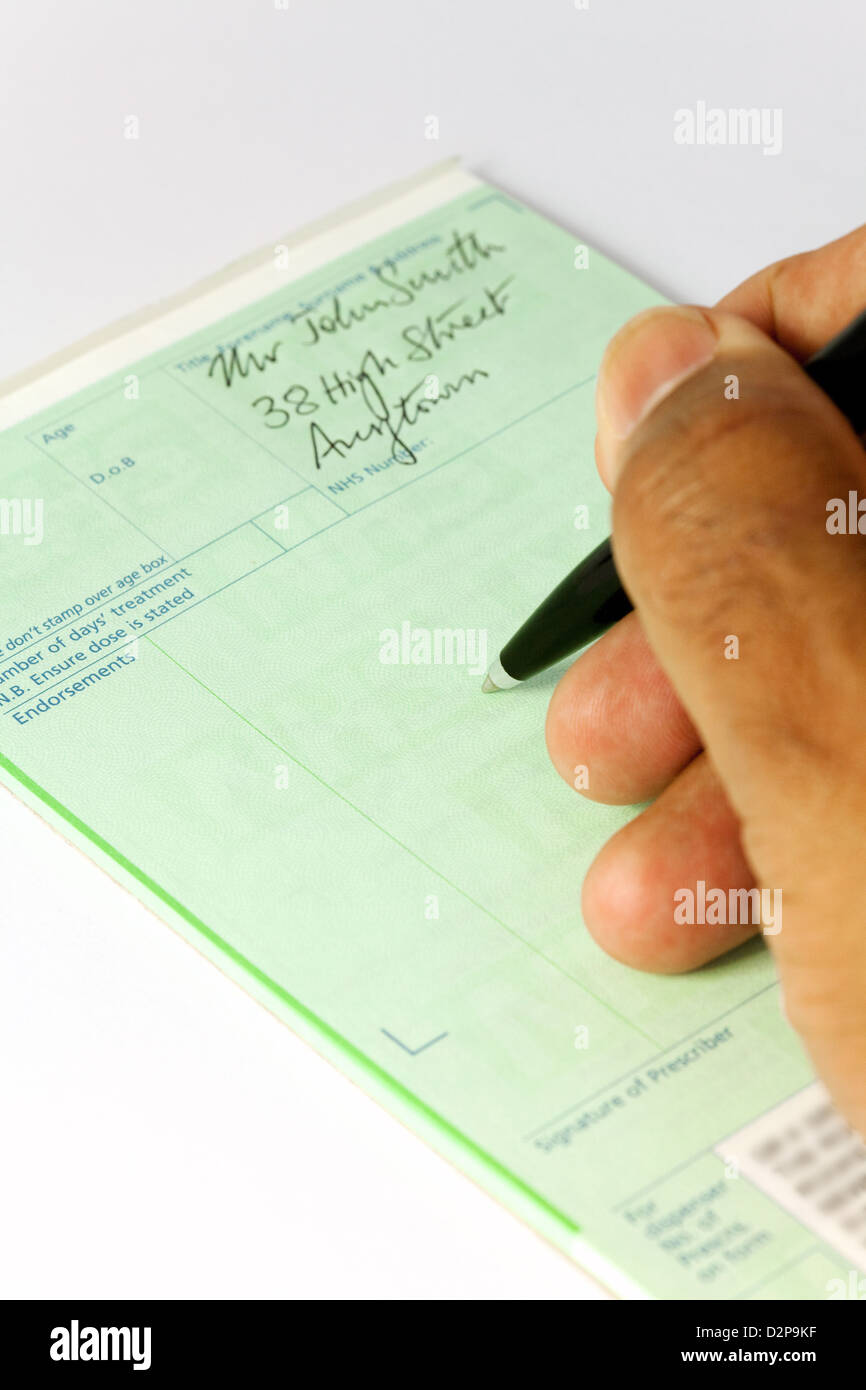 Title, Forename, Surname & Address
Mr John Smith
38 High Street
Anytown
Age
D.o.B
NHS Number:
e don't stamp over age box
umber of days' treatment
N.B. Ensure dose is stated
Endorsements
Signature of Prescriber
For
dispenser
No. of
Prescns.
on form
alamy
Image ID: D2P9KF
www.alamy.com